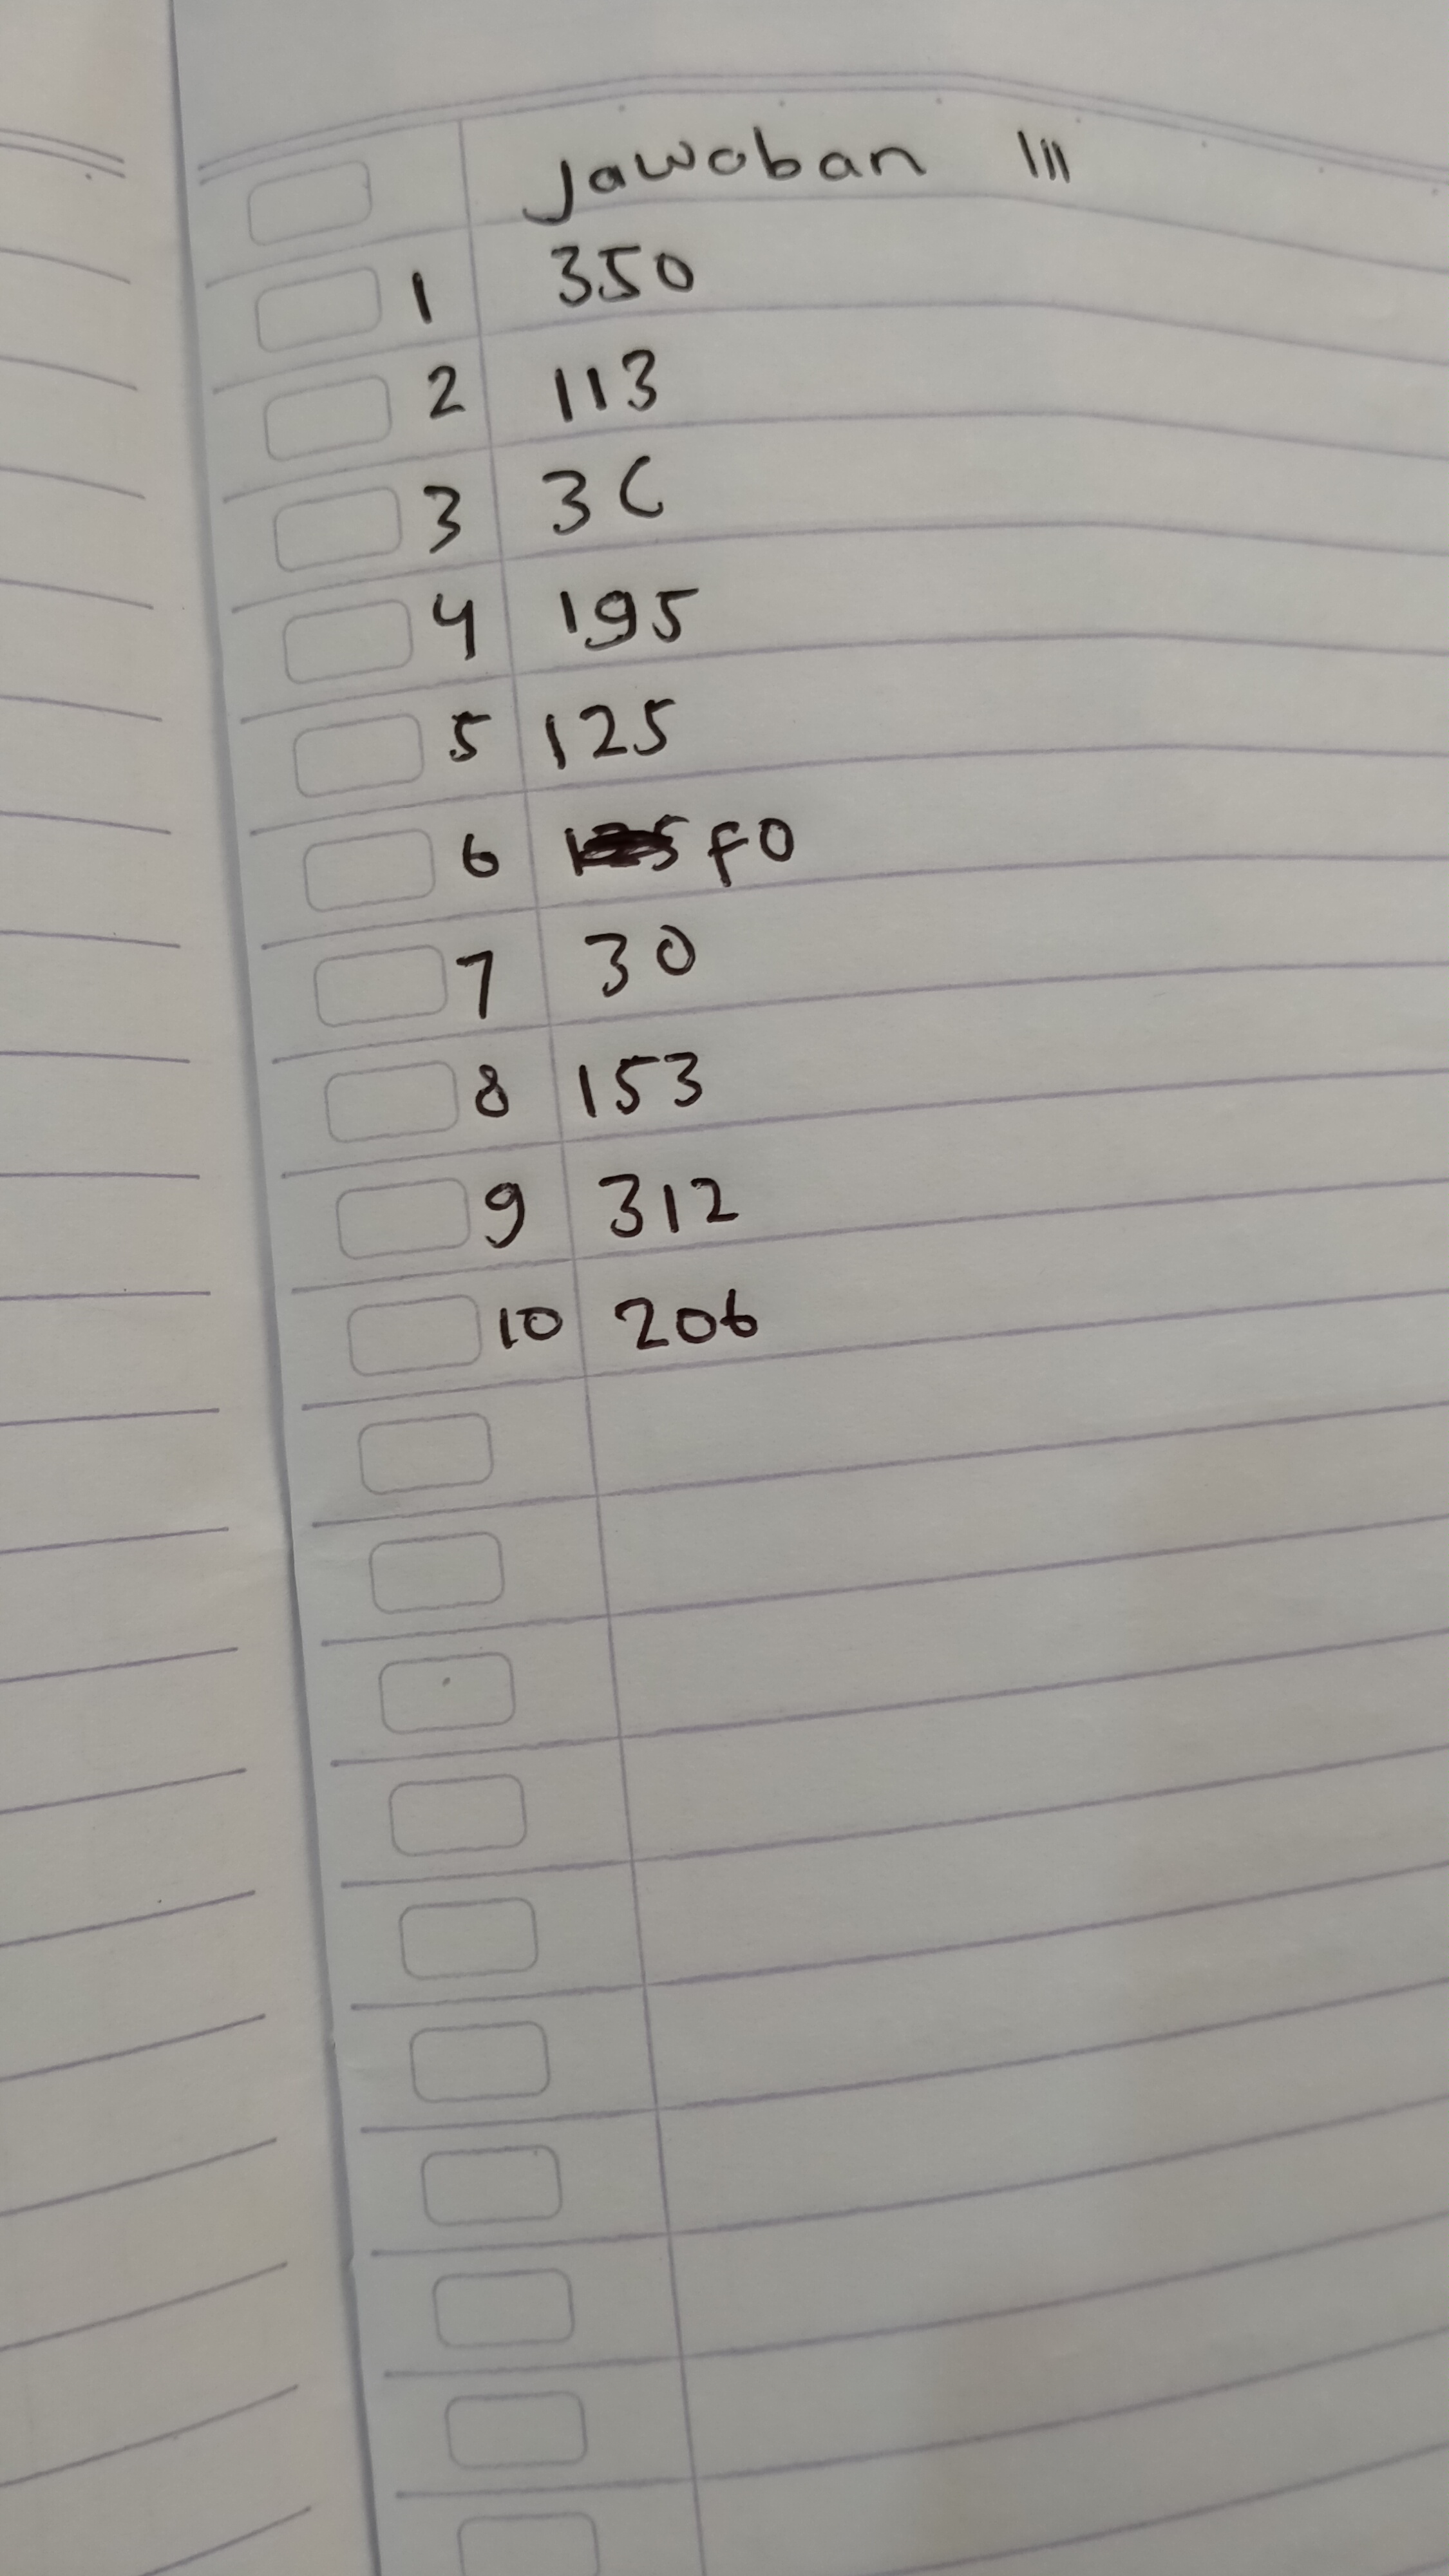 Jawaban III
1 350
2 113
3 3C
4 195
5 125
6 F0
7 30
8 153
9 312
10 206